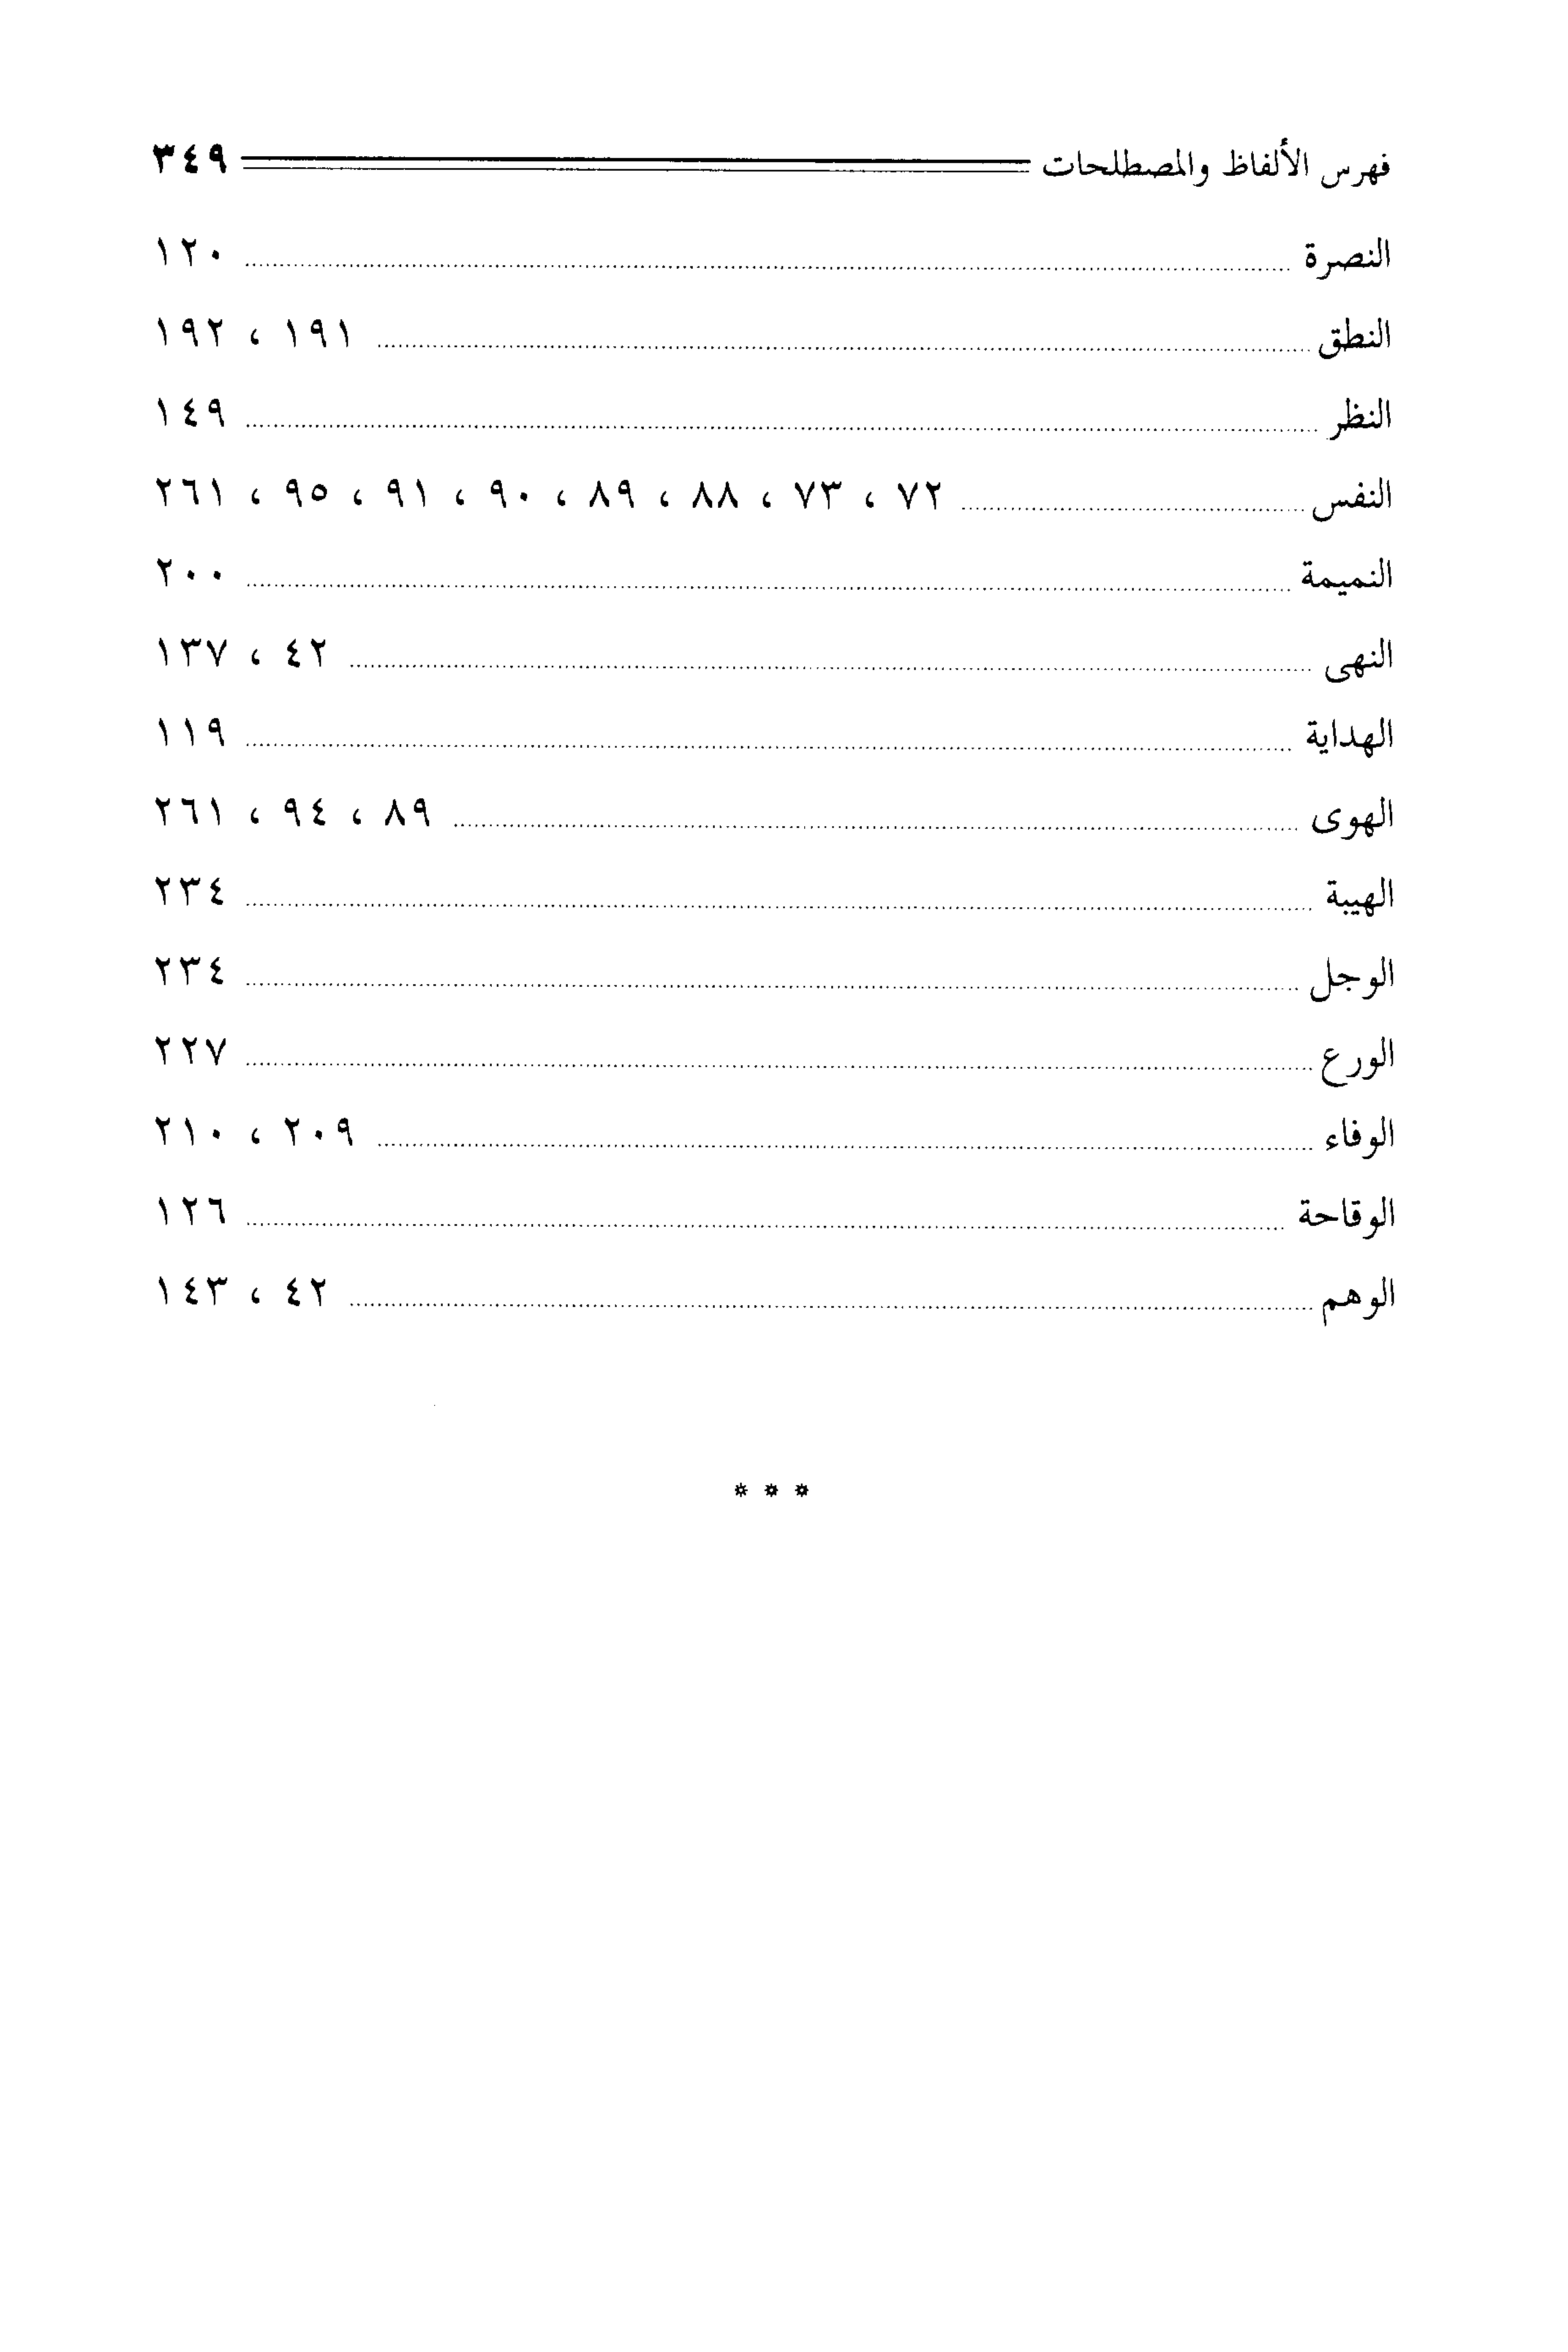 فهرس الألفاظ والمصطلحات ٣٤٩
النصرة ١٢٠
النطق ١٩١ ، ١٩٢
النظر ١٤٩
النفس ٧٢ ، ٧٣ ، ٨٨ ، ٨٩ ، ٩٠ ، ٩١ ، ٩٥ ، ٢٦١
النميمة ٢٠٠
النهى ٤٢ ، ١٣٧
الهداية ١١٩
الهوى ٨٩ ، ٩٤ ، ٢٦١
الهيبة ٢٣٤
الوجل ٢٣٤
الورع ٢٢٧
الوفاء ٢٠٩ ، ٢١٠
الوقاحة ١٢٦
الوهم ٤٢ ، ١٤٣
* * *